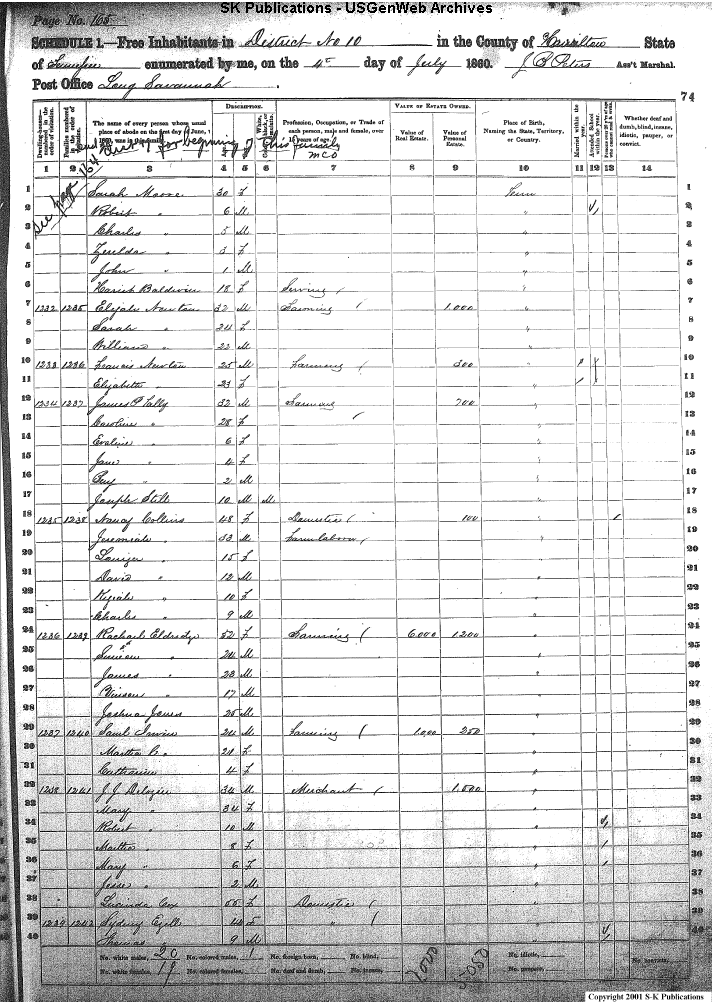 SK Publications - USGenWeb Archives
Page No. 165
SCHEDULE 1.—Free Inhabitants in District No 10 in the County of Hamilton State
of Tennessee enumerated by me, on the 4th day of July 1860. Ass't Marshal.
Post Office Long Savannah
74
DESCRIPTION. VALUE OF ESTATE OWNED.
The name of every person whose usual place of abode on the first day of June, 1860, was in this family.
Profession, Occupation, or Trade of each person, male and female, over 15 years of age.
Value of Real Estate. Value of Personal Estate.
Place of Birth, Naming the State, Territory, or Country.
Married within the year. Attended School within the year.
Whether deaf and dumb, blind, insane, idiotic, pauper, or convict.
1 2 3 4 5 6 7 8 9 10 11 12 13 14
see page 164 for beginning of this family
1 Sarah Moore 30 F Tenn 1
2 Robert " 6 M " 2
3 Charles " 5 M " 3
4 Zerelda " 3 F " 4
5 John " 1 M " 5
6 Baldwin 18 F " 6
7 1232 1235 Elijah Newton 32 M Farming 1,000 " 7
8 Sarah " 24 F " 8
9 William " 22 M " 9
10 1233 1236 Francis Newton 25 M Farming 300 " 10
11 Elizabeth " 23 F " 11
12 1234 1237 James P Tally 32 M Farming 700 " 12
13 Caroline " 28 F " 13
14 Evaline " 6 F " 14
15 Jane " 4 F " 15
16 " 2 M " 16
17 Joseph Still 10 M M " 17
18 1235 1238 Nancy Collins 48 F Domestic 100 " 18
19 Jeremiah " 23 M Farm labour " 19
20 " 15 F " 20
21 David " 12 M " 21
22 " 10 F " 22
23 Charles " 9 M " 23
24 1236 1239 Rachael Eldridge 52 F Farming 6,000 1200 " 24
25 Simeon " 24 M " 25
26 James " 23 M " 26
27 " 17 M " 27
28 Joshua Jones 25 M " 28
29 1237 1240 Saml Irwin 24 M Farming 1,000 250 " 29
30 Martha " 21 F " 30
31 Catharine 4 F " 31
32 1238 1241 J. J. Delozier 34 M Merchant 1,000 " 32
33 Mary " 34 F " 33
34 Robert " 10 M " 34
35 Martha " 8 F " 35
36 Mary " 6 F " 36
37 Jesse " 2 M " 37
38 Lucinda Cox 55 F Domestic " 38
39 1239 1242 Sydney Ezell F " " 39
40 Thomas 9 M " 40
No. white males, 20 No. colored males, 1 No. foreign born, No. blind, No. idiotic, No. convicts,
No. white females, 19 No. colored females, No. deaf and dumb, No. insane, 7,000 5050 No. paupers,
Copyright 2001 S-K Publications